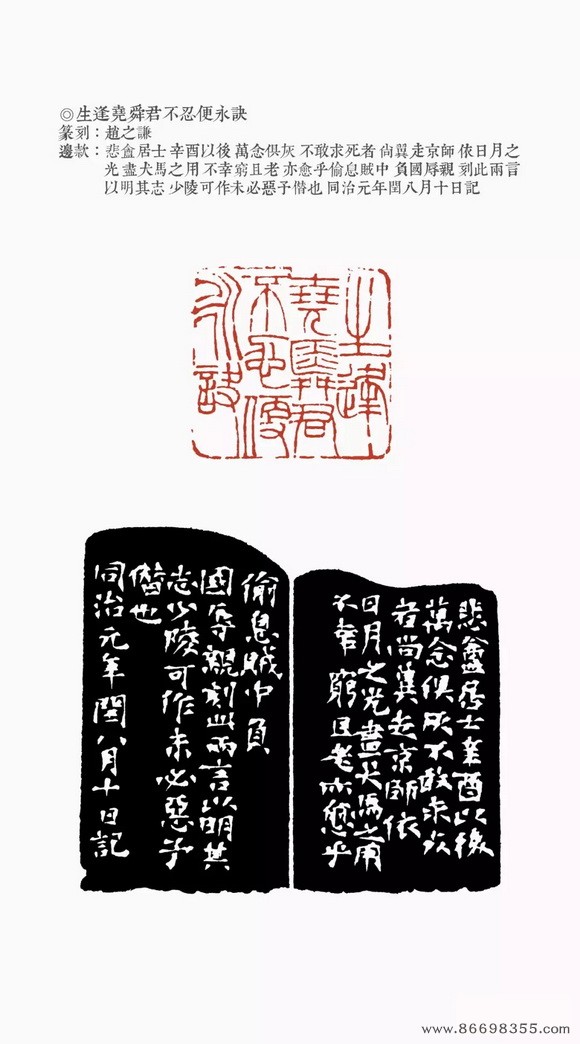 ◎生逢堯舜君不忍便永訣
篆刻：趙之謙
邊款：悲盦居士 辛酉以後 萬念俱灰 不敢求死者 尚冀走京師 依日月之
光 盡犬馬之用 不幸窮且老 亦愈乎偷息賊中 負國辱親 刻此兩言
以明其志 少陵可作未必惡予僭也 同治元年閏八月十日記
生逢
堯舜君
不忍便
永訣
悲盦居士辛酉以後
萬念俱灰不敢求死
者尚冀走京師依
日月之光盡犬馬之用
不幸窮且老亦愈乎
偷息賊中負
國辱親刻此兩言以明其
志少陵可作未必惡予
僭也
同治元年閏八月十日記
www.86698355.com